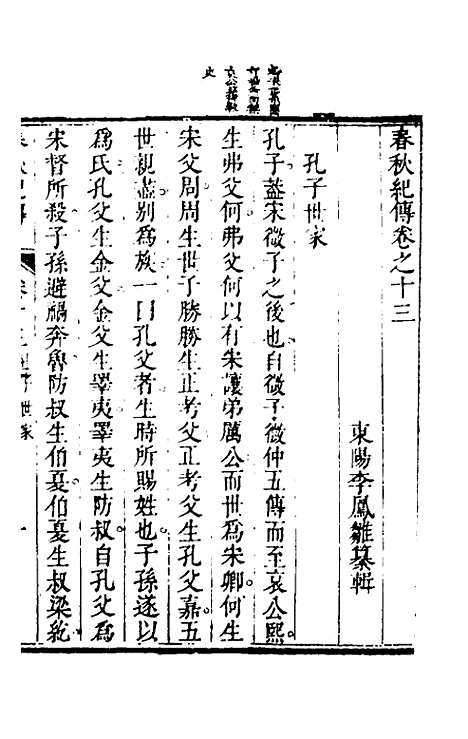 春秋紀傳卷之十三
東陽李鳳雛纂輯
孔子世家
孔子蓋宋微子之後也自微子微仲五傳而至哀公熙
生弗父何弗父何以有宋讓弟厲公而世為宋卿何生
宋父周周生世子勝勝生正考父正考父生孔父嘉五
世親盡別為族一曰孔父者生時所賜姓也子孫遂以
為氏孔父生金父金父生睪夷睪夷生防叔自孔父為
宋督所殺子孫避禍奔魯防叔生伯夏伯夏生叔梁紇
世家